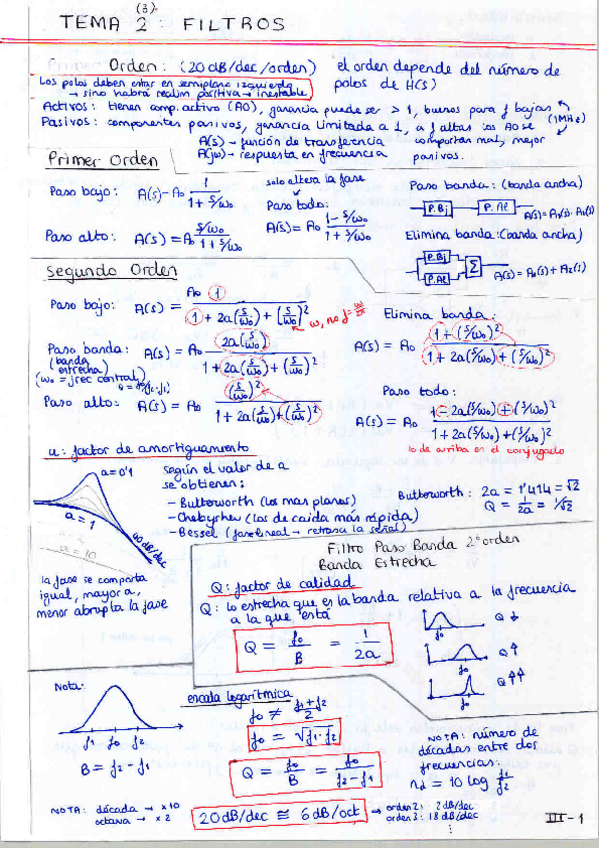 (3)
TEMA 2: FILTROS
Orden: (20 dB/dec/orden) el orden depende del número de polos de H(s)
Los polos deben estar en semiplano izquierdo
→ sino habrá realim positiva → inestable
Activos: tienen comp. activo (AO), ganancia puede ser > 1, buenos para f bajas
(1MHz)
Pasivos: componentes pasivos, ganancia limitada a 1, a f altas los AO se comportan mal, mejor pasivos.
A(s) → función de transferencia
A(jω) → respuesta en frecuencia
Primer Orden
Paso bajo: A(s) = A₀ 1 / (1 + s/ω₀)
solo altera la fase
Paso todo: A(s) = A₀ (1 - s/ω₀) / (1 + s/ω₀)
Paso banda: (banda ancha)
P.Bj P.Al A(s) = A₁(s)·A₂(s)
Paso alto: A(s) = A₀ (s/ω₀) / (1 + s/ω₀)
Elimina banda: (banda ancha)
P.Bj
P.Al Σ A(s) = A₁(s) + A₂(s)
Segundo Orden
Paso bajo: A(s) = A₀ 1 / (1 + 2a(s/ω₀) + (s/ω₀)²)
ω, no f = ω/2π
Elimina banda:
A(s) = A₀ (1 + (s/ω₀)²) / (1 + 2a(s/ω₀) + (s/ω₀)²)
Paso banda: A(s) = A₀ 2a(s/ω₀) / (1 + 2a(s/ω₀) + (s/ω₀)²)
(banda estrecha)
(ω₀ = frec central)
Paso alto: A(s) = A₀ (s/ω₀)² / (1 + 2a(s/ω₀) + (s/ω₀)²)
Paso todo:
A(s) = A₀ (1 - 2a(s/ω₀) + (s/ω₀)²) / (1 + 2a(s/ω₀) + (s/ω₀)²)
lo de arriba en el conjugado
a: factor de amortiguamiento
a = 0'1
a = 1
a = 10
40 dB/dec
Según el valor de a
se obtienen:
- Butterworth (los mas planos)
- Chebyshev (los de caida más rápida)
- Bessel (fase lineal → retrasa la señal)
Butterworth: 2a = 1'414 = √2
Q = 1/2a = 1/√2
la fase se comporta
igual, mayor a,
menor abrupta la fase
Filtro Paso Banda 2º orden
Banda Estrecha
Q: factor de calidad
Q: lo estrecha que es la banda relativa a la frecuencia
a la que está
Q = f₀/B = 1/2a
Q ↓
Q ↑
Q ↑↑
Nota:
f₁ f₀ f₂
B = f₂ - f₁
escala logarítmica
f₀ ≠ (f₁ + f₂)/2
f₀ = √(f₁·f₂)
Q = f₀/B = f₀/(f₂ - f₁)
NOTA: número de
décadas entre dos
frecuencias:
nd = 10 log f₁/f₂
NOTA: década → x10
octava → x2
20 dB/dec ≅ 6 dB/oct → orden 2: 12 dB/dec
orden 3: 18 dB/dec
III-1